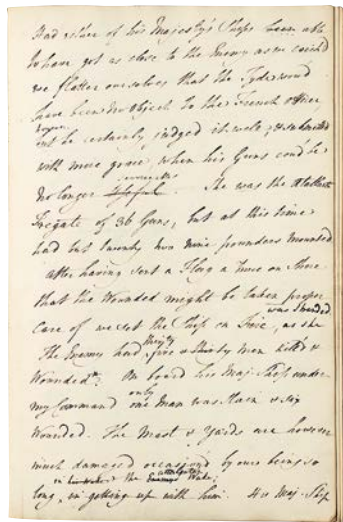 Had either of his Majesty's Ships been able
to have got as close to the Enemy as we could
we flatter ourselves that the Tyde wou'd
have been no object to the French officer
but he certainly judged it well, & submitted
with more grace, when his Guns cou'd be
no longer
serviceable
useful. She was the
Fregate of 36 Guns, but at this time
had but twenty two nine pounders mounted
after having sent a Flag a Truce on Shore
that the Wounded might be taken proper
care of we set the Ship on Fire, as she
was stranded
The Enemy had five & thirty men kill'd &
thirty
Wounded. On board his Maj: Ship under
my Command one man was Slain & six
only
Wounded. The Mast & Yards are however
much damaged occasion'd by our being so
in the Enemys Wake,
long, in getting up with him. His Maj: Ship